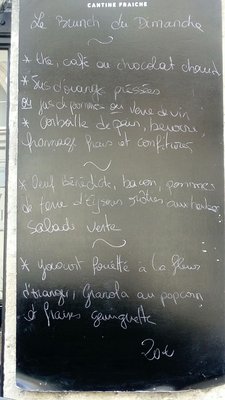 CANTINE FRAICHE
Le Brunch du Dimanche
* thé, café ou chocolat chaud
* Jus d'orange pressées
ou jus de pommes ou verre de vin
* Corbeille de pain, beurre,
fromage frais et confitures
* Oeuf Bénédicte, bacon, pommes
de terre d'Eysines rôties aux herbes
salade verte
* yaourt fouetté à la fleur
d'oranger, Granola au popcorn
et fraises gariguette
20€